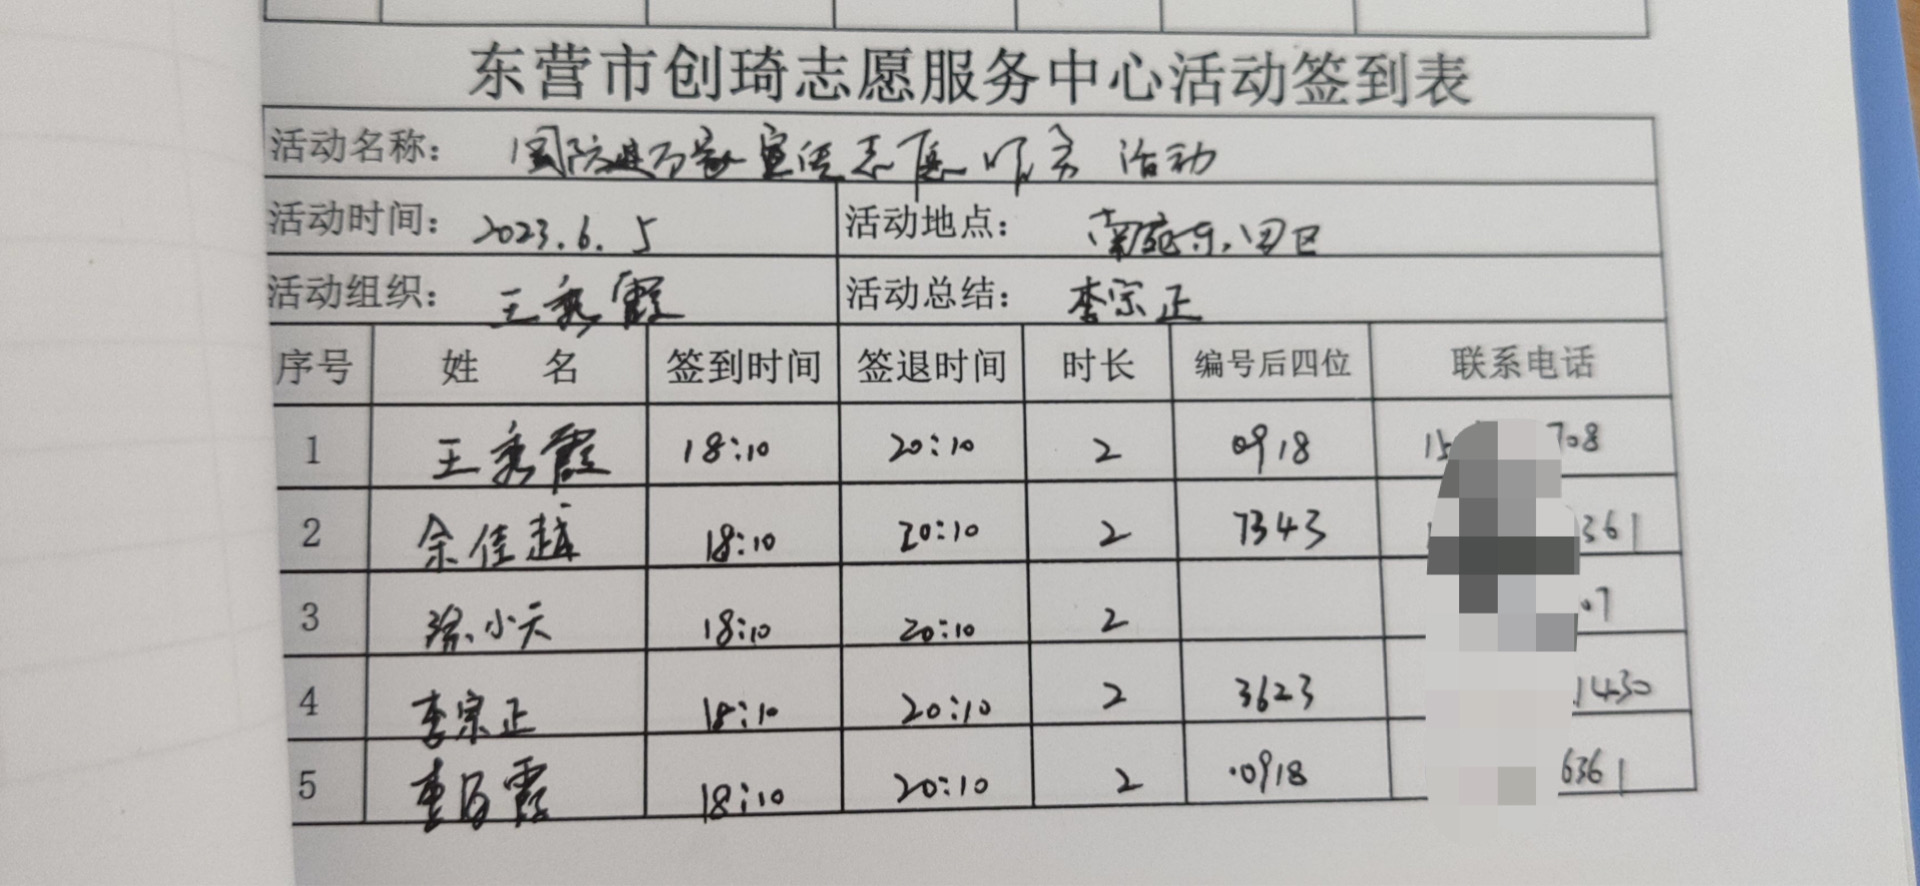 东营市创琦志愿服务中心活动签到表
活动名称： 国防进万家宣传志愿服务活动
活动时间： 2023.6.5 活动地点： 南苑东区
活动组织： 王秀霞 活动总结： 李宗正
序号 姓 名 签到时间 签退时间 时长 编号后四位 联系电话
1 王秀霞 18:10 20:10 2 0918 15 708
2 余佳越 18:10 20:10 2 7343 361
3 小天 18:10 20:10 2 07
4 李宗正 18:10 20:10 2 3623 1430
5 霞 18:10 20:10 2 0918 6361